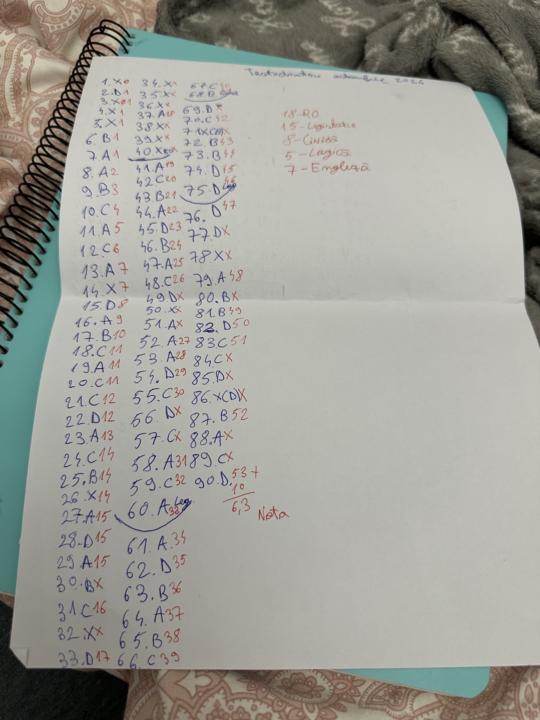 1.X0
2.D1
3.X01
4.X1
5.X1
6.B1
7.A1
8.A2
9.B3
10.C4
11.A5
12.C6
13.A7
14.X7
15.D8
16.A9
17.B10
18.C11
19.A11
20.C11
21.C12
22.D12
23.A13
24.C14
25.B14
26.X14
27.A15
28.D15
29.A15
30.BX
31.C16
32.XX
33.D17
34.XX
35.XX
36.XX
37.A18
38.XX
39.XX
40.X
41.A19
42.C20
43.B21
44.A22
45.D23
46.B24
47.A25
48.C26
49.DX
50.XX
51.AX
52.A27
53.A28
54.D29
55.C30
56.DX
57.CX
58.A31
59.C32
60.A Leg
33
61.A.34
62.D35
63.B36
64.A37
65.B38
66.C39
67.C
68.B
69.DX
70.C42
71.X
72.B43
73.B44
74.D45
75.D Log
46
76.D47
77.DX
78.XX
79.A48
80.BX
81.B49
82.D50
83.C51
84.CX
85.DX
86.X(D)X
87.B52
88.AX
89.CX
90.D.53+
10
6,3
Nota
18-RO
15-Legislatie
8-Civică
5-Logică
7-Engleză